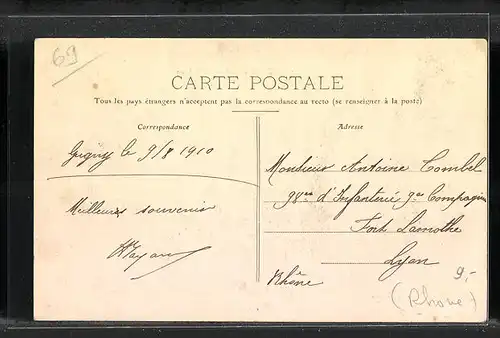 69
CARTE POSTALE
Tous les pays étrangers n'acceptent pas la correspondance au recto (se renseigner à la poste)
Correspondance
Grigny le 9/8 1910
Meilleurs souvenirs
Adresse
Monsieur Antoine Combel
98me d'Infanterie 9e Compagnie
Fort Lamothe
Lyon
Rhône
9,-
(Rhone)